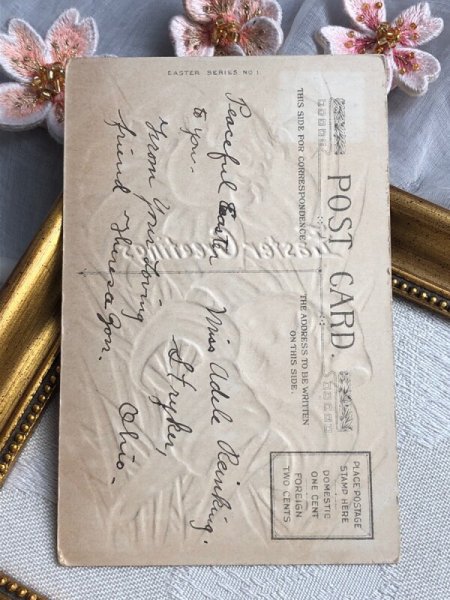 EASTER SERIES NO 1
POST CARD.
THIS SIDE FOR CORRESPONDENCE
THE ADDRESS TO BE WRITTEN
ON THIS SIDE.
PLACE POSTAGE
STAMP HERE
DOMESTIC
ONE CENT
FOREIGN
TWO CENTS
Easter Greetings
Peaceful Easter
to you.
From Your loving
friend
Miss Adele Reinking.
Stryker,
Ohio.